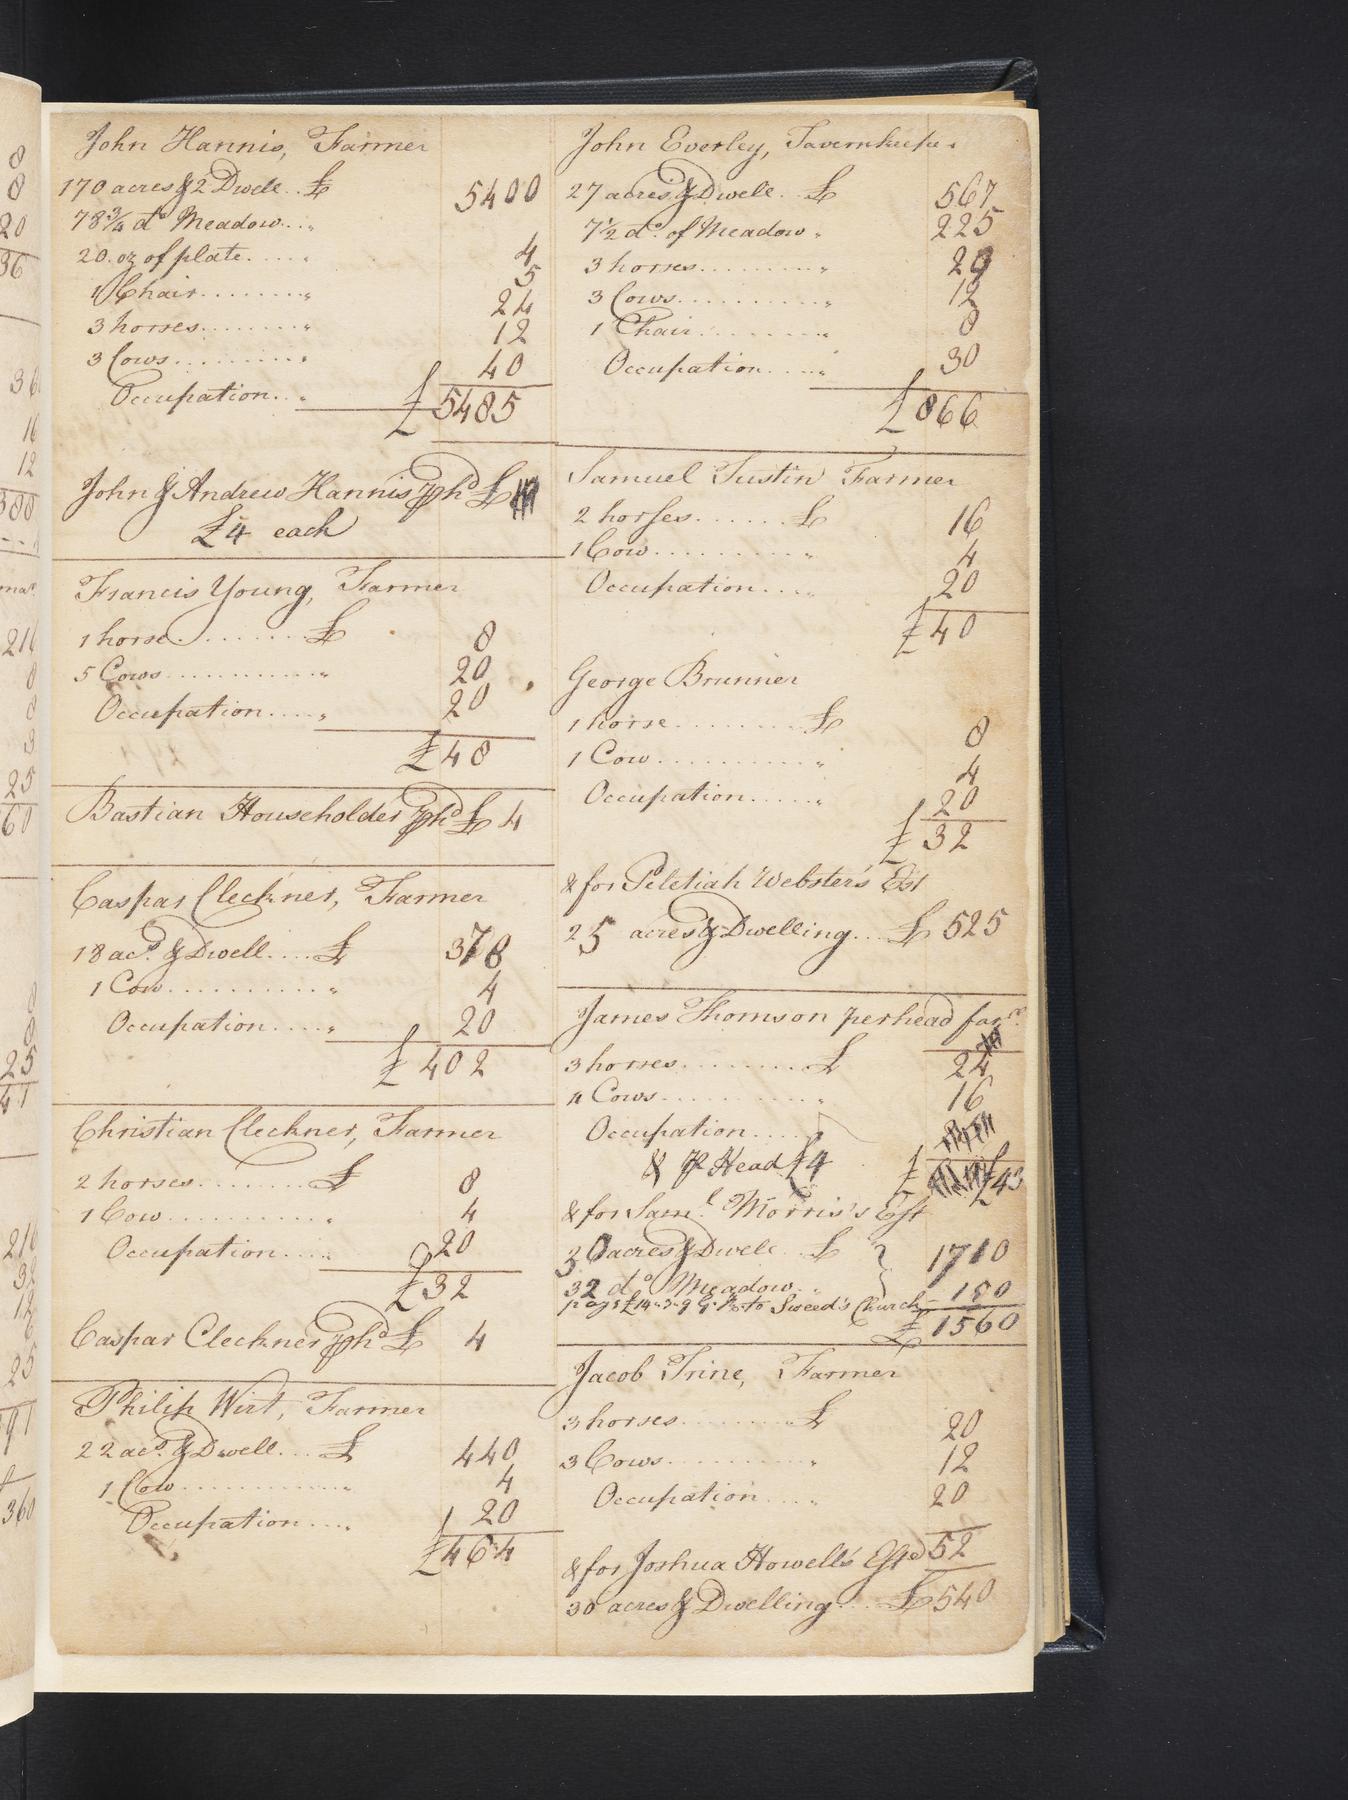 John Hannis, Farmer
170 acres & 2 Dwell.. £ 5400
78¾ do Meadow.. "
20. oz of plate..... " 4
1 Chair......... " 5
3 horses......... " 24
3 Cows.......... " 12
Occupation... " 40
£ 5485
John & Andrew Hannis phd £
£4 each
Francis Young, Farmer
1 horse.......... £ 8
5 Cows............ " 20
Occupation..... " 20
£ 48
Bastian Householder phd £ 4
Caspar Cleckner, Farmer
18 acs. & Dwell..... £ 378
1 Cow............ " 4
Occupation..... " 20
£ 402
Christian Cleckner, Farmer
2 horses......... £ 8
1 Cow............ " 4
Occupation.... " 20
£ 32
Caspar Cleckner phd £ 4
Philip Wirt, Farmer
22 acs. & Dwell.... £ 440
1 Cow............. " 4
Occupation.... " 20
£ 464
John Everley, Tavernkeeper
27 acres & Dwell... £ 567
7½ do. of Meadow " 225
3 horses.......... " 20
3 Cows........... " 12
1 Chair.......... " 8
Occupation..... " 30
£ 866
Samuel Justin Farmer
2 horses....... £ 16
1 Cow........... " 4
Occupation.... " 20
£ 40
George Brunner
1 horse.......... £ 8
1 Cow............ " 4
Occupation...... " 20
£ 32
& for Peletiah Webster's Est
25 acres & Dwelling.... £ 525
James Thomson perhead farmr.
3 horses.......... £ 24
4 Cows............ " 16
Occupation....
& P Head £4 £ £43
& for Saml Morris's Est
30 acres & Dwell.. £ 1710
32 do Meadow.. "
pays £14..3..9 to Sweed's Church - 150
£ 1560
Jacob Trine, Farmer
3 horses.......... £ 20
3 Cows........... " 12
Occupation..... " 20
52
& for Joshua Howell's Estd
30 acres & Dwelling.... £ 540